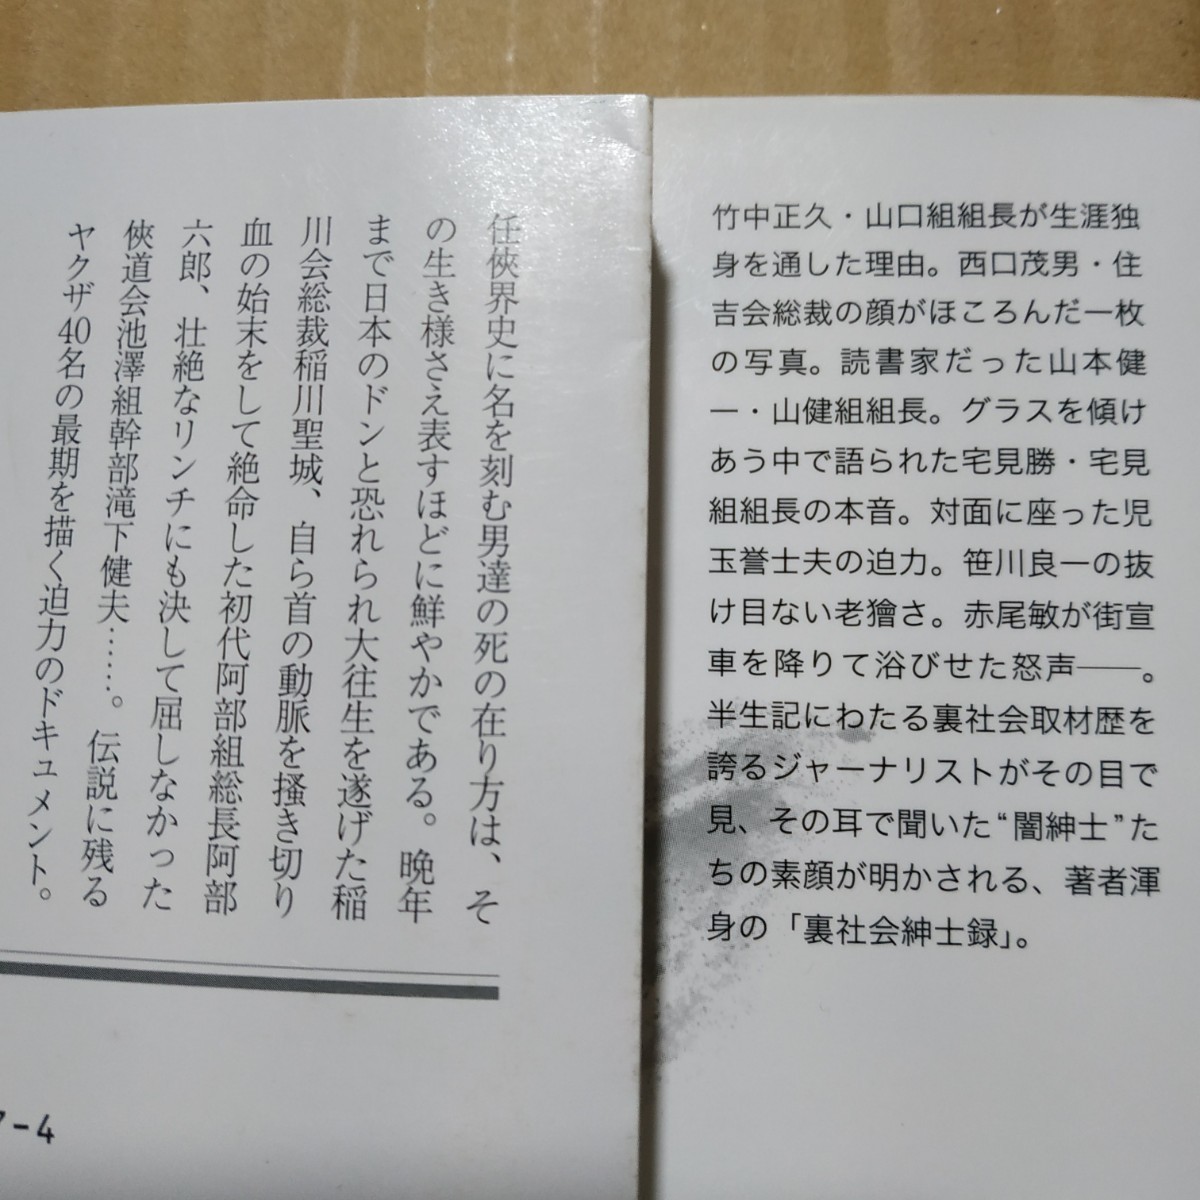 任俠界史に名を刻む男達の死の在り方は、そ
の生き様さえ表すほどに鮮やかである。晩年
まで日本のドンと恐れられ大往生を遂げた稲
川会総裁稲川聖城、自ら首の動脈を搔き切り
血の始末をして絶命した初代阿部組総長阿部
六郎、壮絶なリンチにも決して屈しなかった
俠道会池澤組幹部滝下健夫……。伝説に残る
ヤクザ40名の最期を描く迫力のドキュメント。
-4
竹中正久・山口組組長が生涯独
身を通した理由。西口茂男・住
吉会総裁の顔がほころんだ一枚
の写真。読書家だった山本健
一・山健組組長。グラスを傾け
あう中で語られた宅見勝・宅見
組組長の本音。対面に座った児
玉誉士夫の迫力。笹川良一の抜
け目ない老獪さ。赤尾敏が街宣
車を降りて浴びせた怒声――。
半生記にわたる裏社会取材歴を
誇るジャーナリストがその目で
見、その耳で聞いた“闇紳士”た
ちの素顔が明かされる、著者渾
身の「裏社会紳士録」。